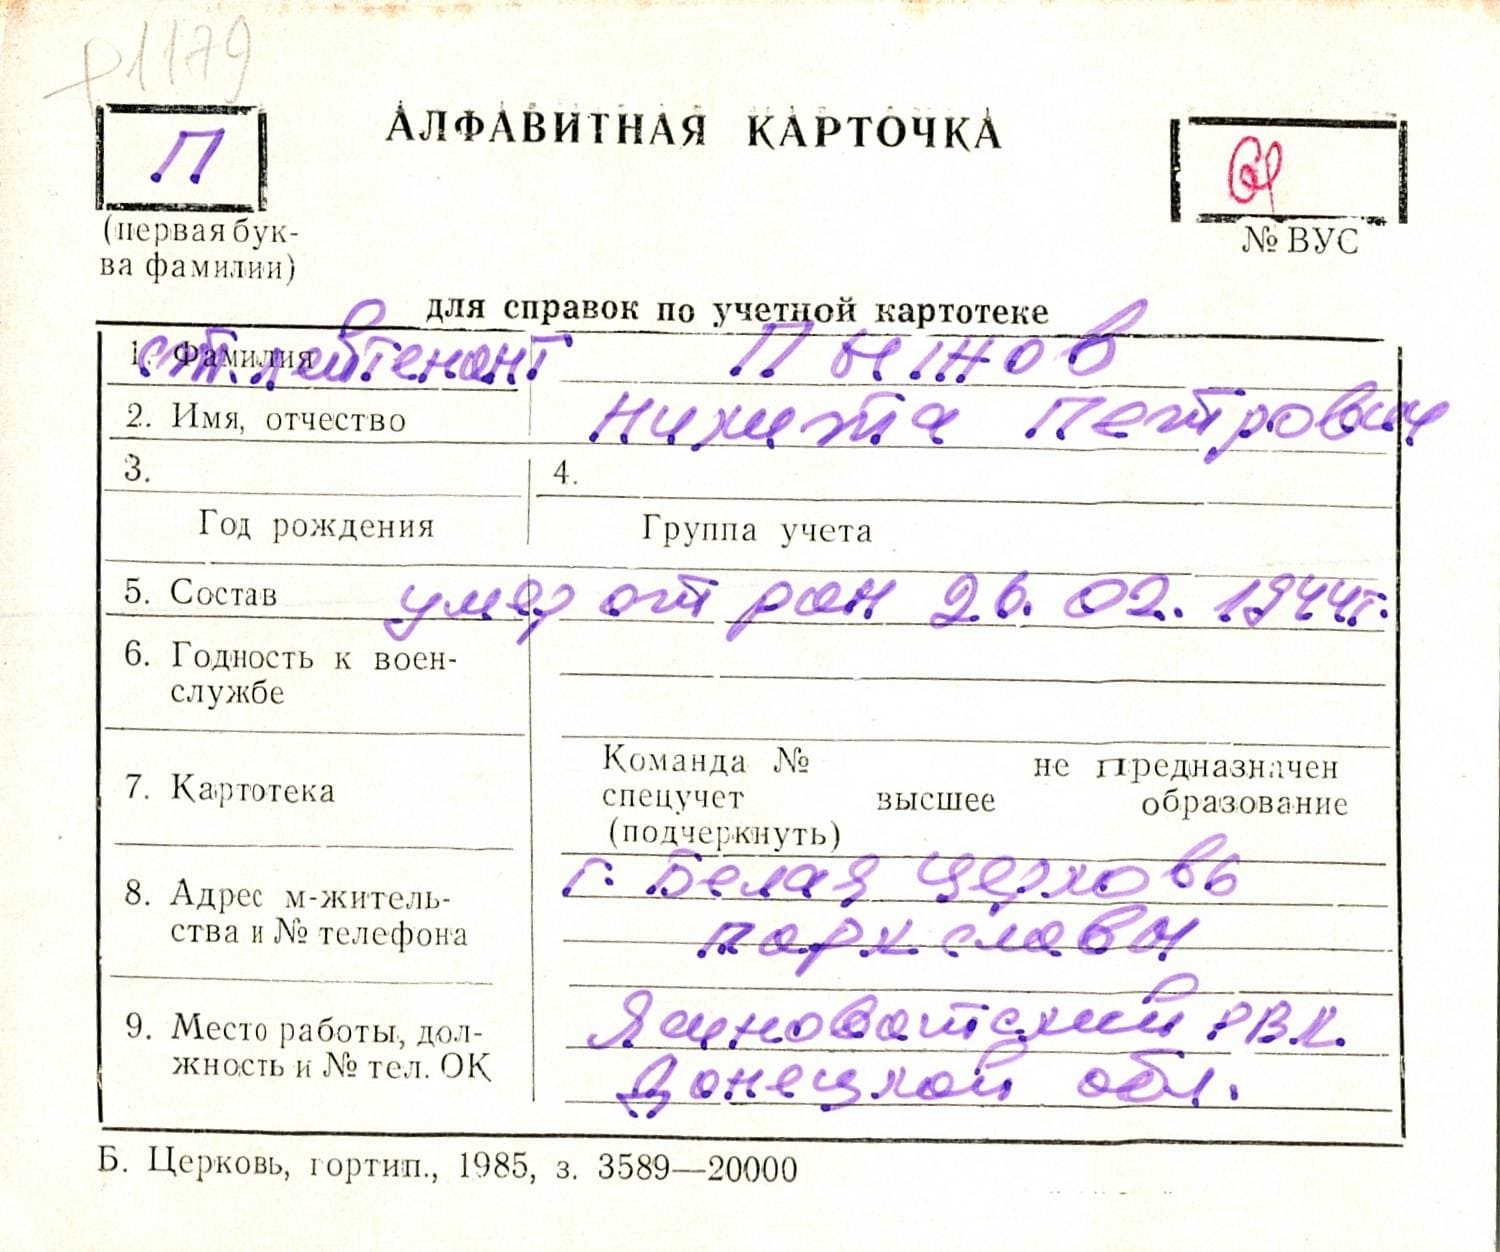 р1179
АЛФАВИТНАЯ КАРТОЧКА
П
(первая бук-
ва фамилии)
№ ВУС
для справок по учетной картотеке
1. Фамилия ст. лейтенант Пынов
2. Имя, отчество Никита Петрович
3. 4.
Год рождения Группа учета
5. Состав умер от ран 26.02.1944г.
6. Годность к воен-
службе
7. Картотека
Команда № не предназначен
спецучет высшее образование
(подчеркнуть)
8. Адрес м-житель-
ства и № телефона
г. Белая Церковь
парк славы
9. Место работы, дол-
жность и № тел. ОК
Ясиноватский РВК
Донецкой обл.
Б. Церковь, гортип., 1985, з. 3589—20000